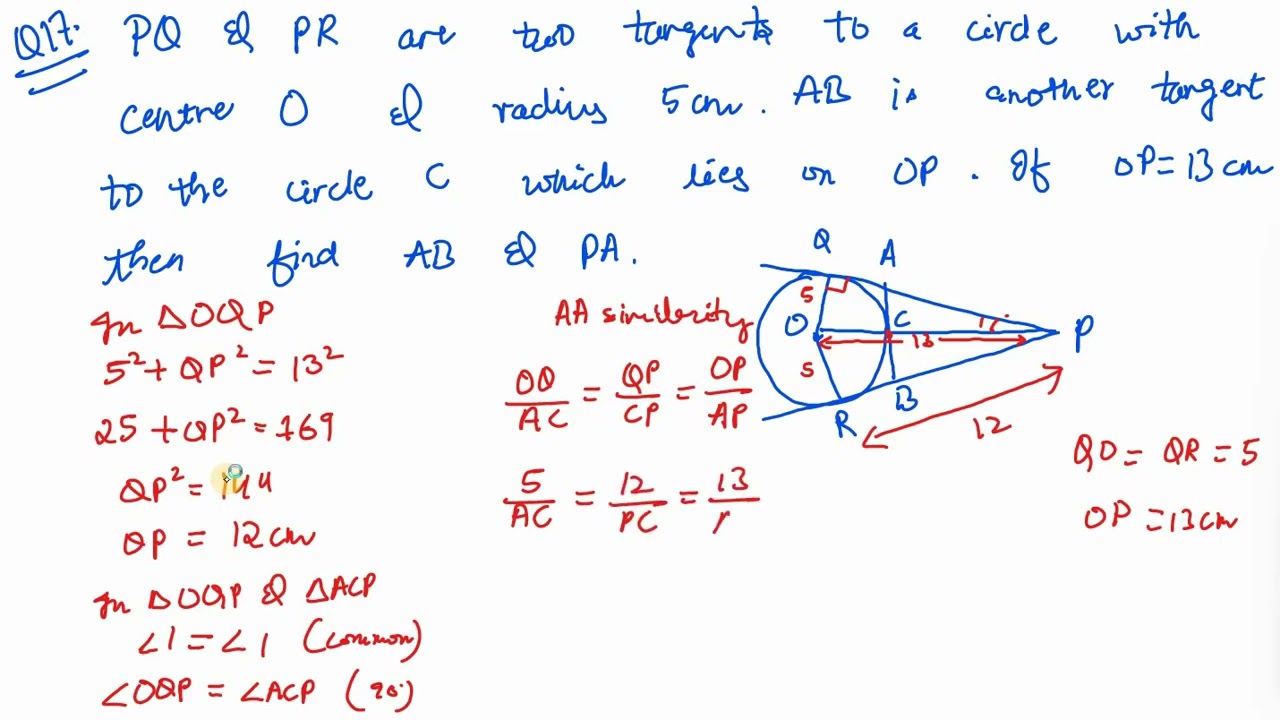 Q17. PQ & PR are two tangents to a circle with
centre O & radius 5cm. AB is another tangent
to the circle C which lies on OP. If OP=13cm
then find AB & PA.
In △OQP
5²+QP²=13²
25+QP²=169
QP²=144
QP = 12cm
In △OQP & △ACP
∠1=∠1 (common)
∠OQP = ∠ACP (90°)
AA similarity
OQ/AC = QP/CP = OP/AP
5/AC = 12/PC = 13/
Q
A
5
O
C
1
P
13
5
B
R
12
QO = QR = 5
OP =13cm